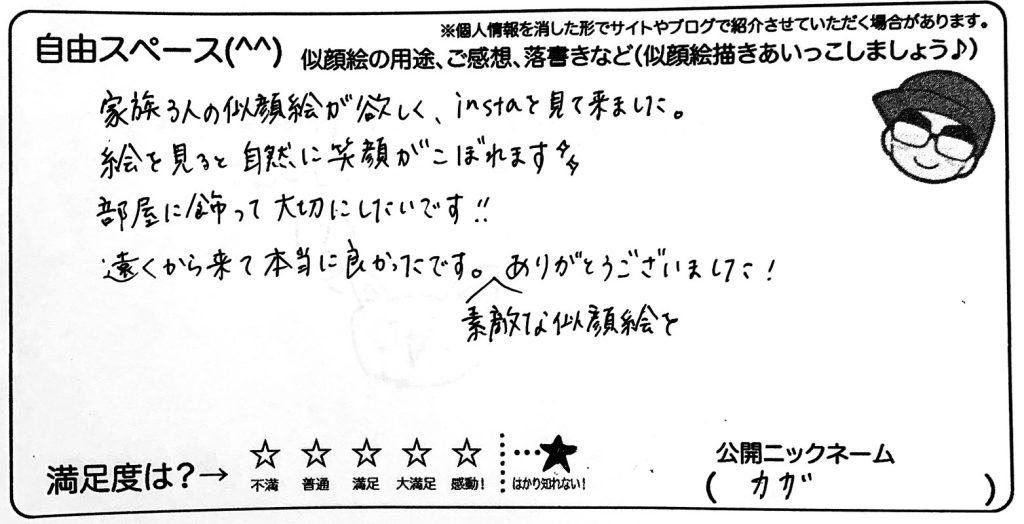 ※個人情報を消した形でサイトやブログで紹介させていただく場合があります。
自由スペース(^^) 似顔絵の用途、ご感想、落書きなど(似顔絵描きあいっこしましょう♪)
家族3人の似顔絵が欲しく、instaを見て来ました。
絵を見ると自然に笑顔がこぼれます
部屋に飾って大切にしたいです!!
遠くから来て本当に良かったです。ありがとうございました!
素敵な似顔絵を
満足度は?→ ☆ ☆ ☆ ☆ ☆ …★
不満 普通 満足 大満足 感動! はかり知れない!
公開ニックネーム
(カガ)